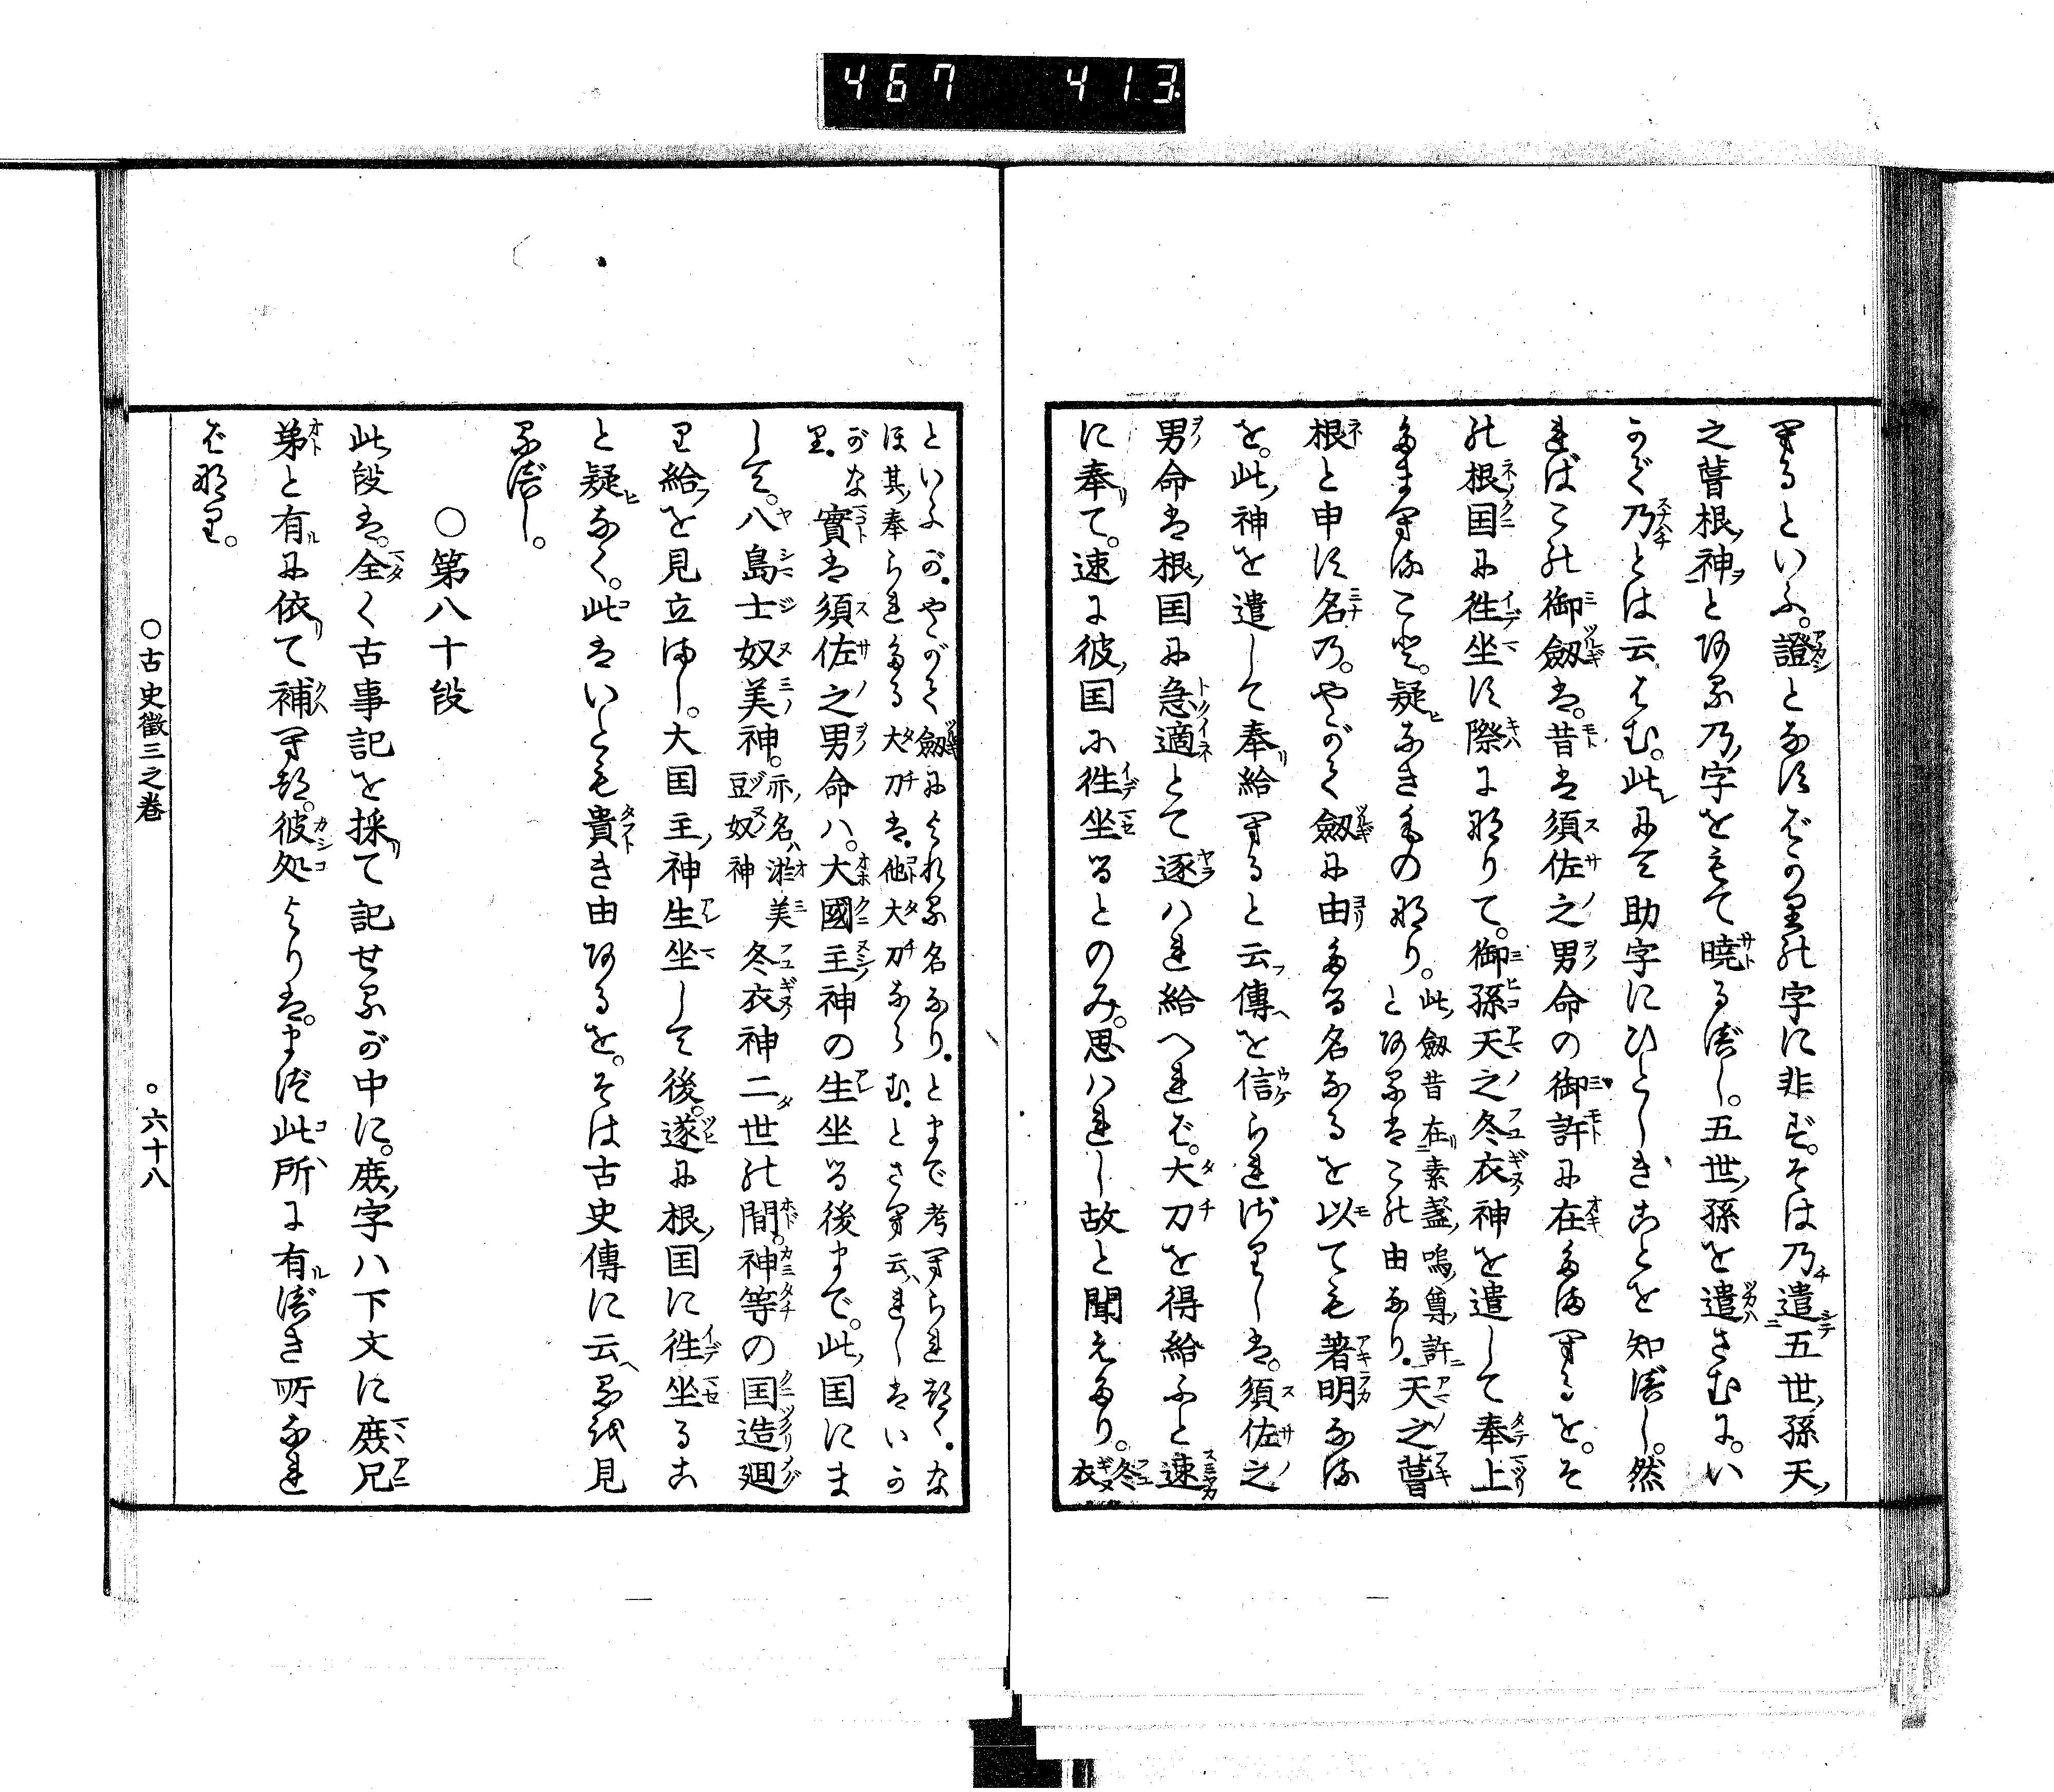 467 413
けるといふ。證となすばかりの字に非ず。そは乃遣五世孫天
之葺根神とある乃字をもて曉るべし。五世孫を遣さむに。い
かで乃とは云はむ。此にて助字にひとしきことを知べし。然
ればこの御劔は。昔は須佐之男命の御許に在たまけるを。そ
の根国に往坐す際に成りて。御孫天之冬衣神を遣して奉上
たまけむこと。疑なきもの也り。此劔昔在素盞嗚尊許とあるはこの由なり。天之葺
根と申す名乃。やがて劔に由たる名なるを以ても著明なる
を。此神を遣して奉給けると云傳を信られざりしは。須佐之
男命は根国に急適とて逐はれ給へれば。大刀を得給ふと速
に奉て。速に彼国に往坐るとのみ。思はれし故と聞えたり。冬衣
といふが。やがて劔によれる名なり。とまで考けられつゝ。な
ほ其奉られたる大刀は。他大刀ならむ。とさへ云れしはいか
がなり。實は須佐之男命ハ。大國主神の生坐る後まで。此国にま
して。八島士奴美神。亦名ハ淤美豆奴神 冬衣神二世の間。神等の国造廻
り給を見立まし。大国主神生坐して後。遂に根国に往坐るこ
と疑なく。此はいとも貴き由あるを。そは古史傳に云へるを見
るべし。
○第八十段
此段は。全く古事記を採て記せるが中に。庶字ハ下文に庶兄
弟と有に依て補けつ。彼処よりは。まづ此所に有べき所なれ
ばなり。
○古史徴三之巻 ○六十八